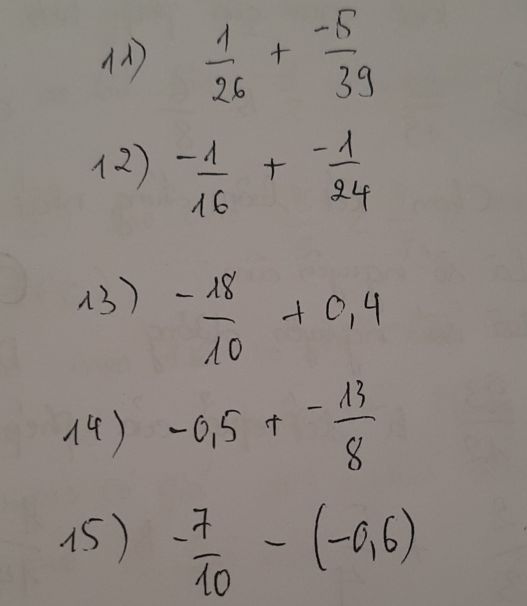 11) 1/26 + -5/39
12) -1/16 + -1/24
13) -18/10 + 0,4
14) -0,5 + -13/8
15) -7/10 - (-0,6)